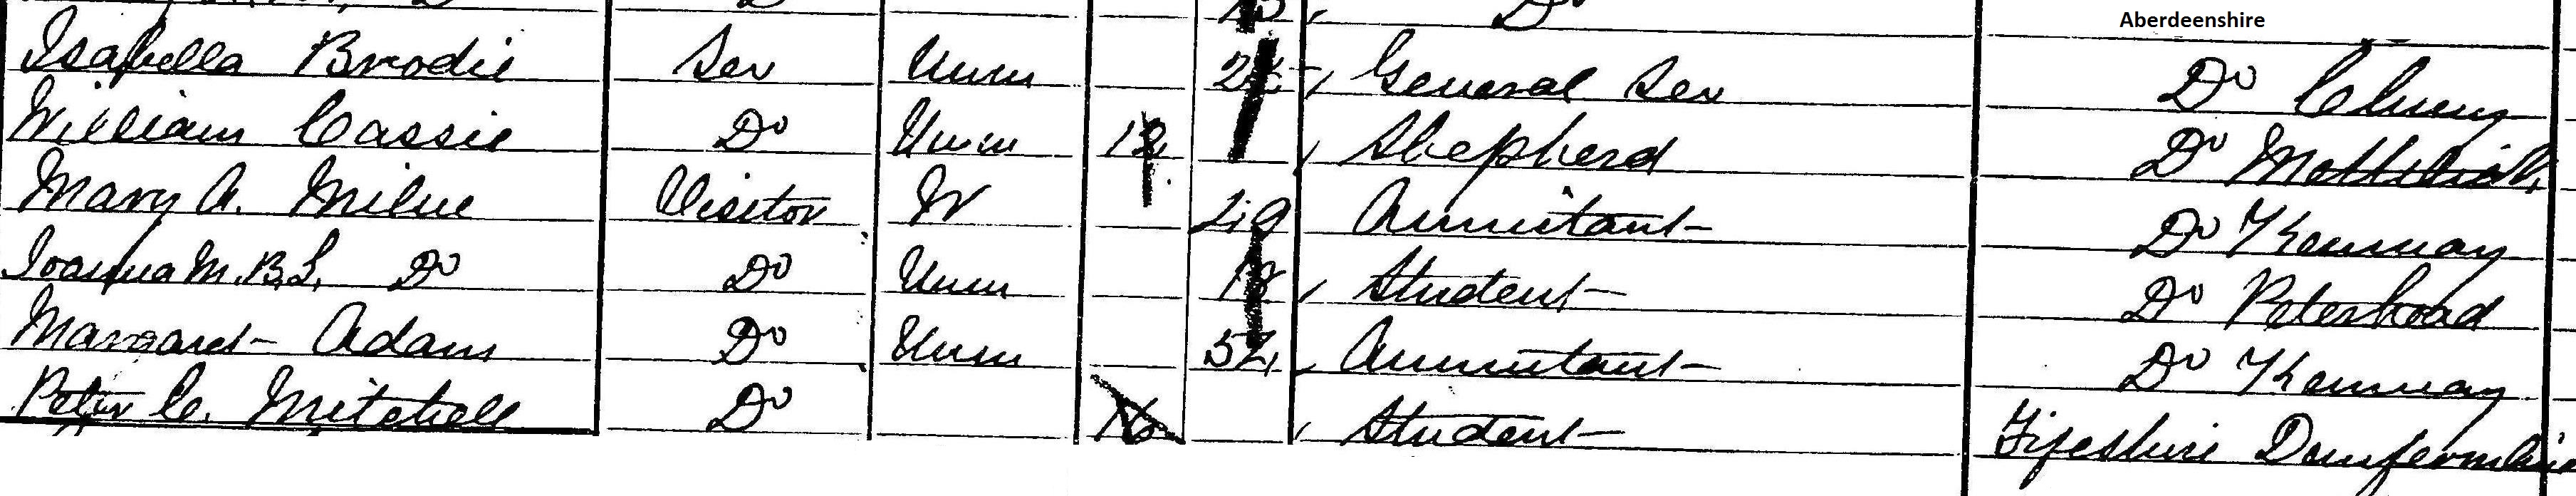 Do Aberdeenshire
Isabella Brodie Ser Unm General Ser Do Cluny
William Cassie Do Unm Shepherd Do
Mary A. Milne Visitor W 49 Annuitant Do Kemnay
Joanna M.B.S. Do Do Unm 18 Student Do Peterhead
Margaret Adam Do Unm 52 Annuitant Do Kemnay
Peter C. Mitchell Do 16 Student Fifeshire Dunfermline